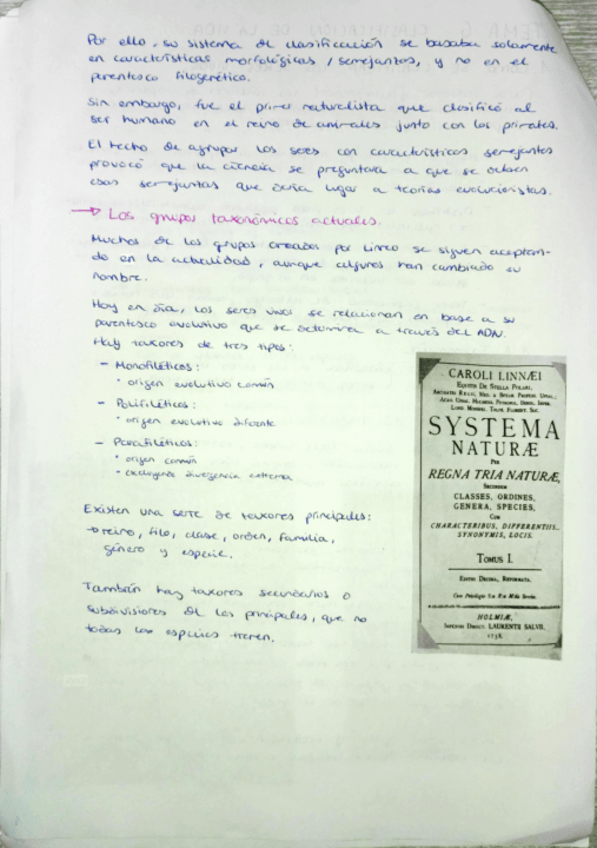 Por ello, su sistema de clasificación se basaba solamente
en características morfológicas / semejantes, y no en el
parentesco filogenético.
Sin embargo, fue el primer naturalista que clasificó al
ser humano en el reino de animales junto con los primates.
El hecho de agrupar los seres con características semejantes
provocó que la ciencia se preguntara a que se deben
esas semejantas que daría lugar a teorías evolucionistas.
→ Los grupos taxonómicos actuales.
Muchos de los grupos creados por Linneo se siguen aceptan-
do en la actualidad, aunque algunos han cambiado su
nombre.
Hoy en día, los seres vivos se relacionan en base a su
parentesco evolutivo que se determina a través del ADN.
Hay taxones de tres tipos:
- Monofiléticos:
• origen evolutivo común
- Polifiléticos:
• origen evolutivo diferente
- Parafiléticos:
• origen común
• excluyendo divergencia extrema
Existen una serie de taxones principales:
→ reino, filo, clase, orden, familia,
género y especie.
También hay taxones secundarios o
subdivisiones de los principales, que no
todas las especies tienen.
CAROLI LINNÆI
EQUITIS DE STELLA POLARI,
ARCHIATRI REGII, MED. & BOTAN. PROFESS. UPSAL.;
ACAD. UPSAL. HOLMENS. PETROPOL. BEROL. IMPER.
LOND. MONSPEL. TOLOS. FLORENT. SOC.
SYSTEMA
NATURÆ
PER
REGNA TRIA NATURÆ,
SECUNDUM
CLASSES, ORDINES,
GENERA, SPECIES,
CUM
CHARACTERIBUS, DIFFERENTIIS,
SYNONYMIS, LOCIS.
TOMUS I.
EDITIO DECIMA, REFORMATA.
Cum Privilegio S:æ R:æ M:tis Sveciæ.
HOLMIÆ,
IMPENSIS DIRECT. LAURENTII SALVII,
1758.